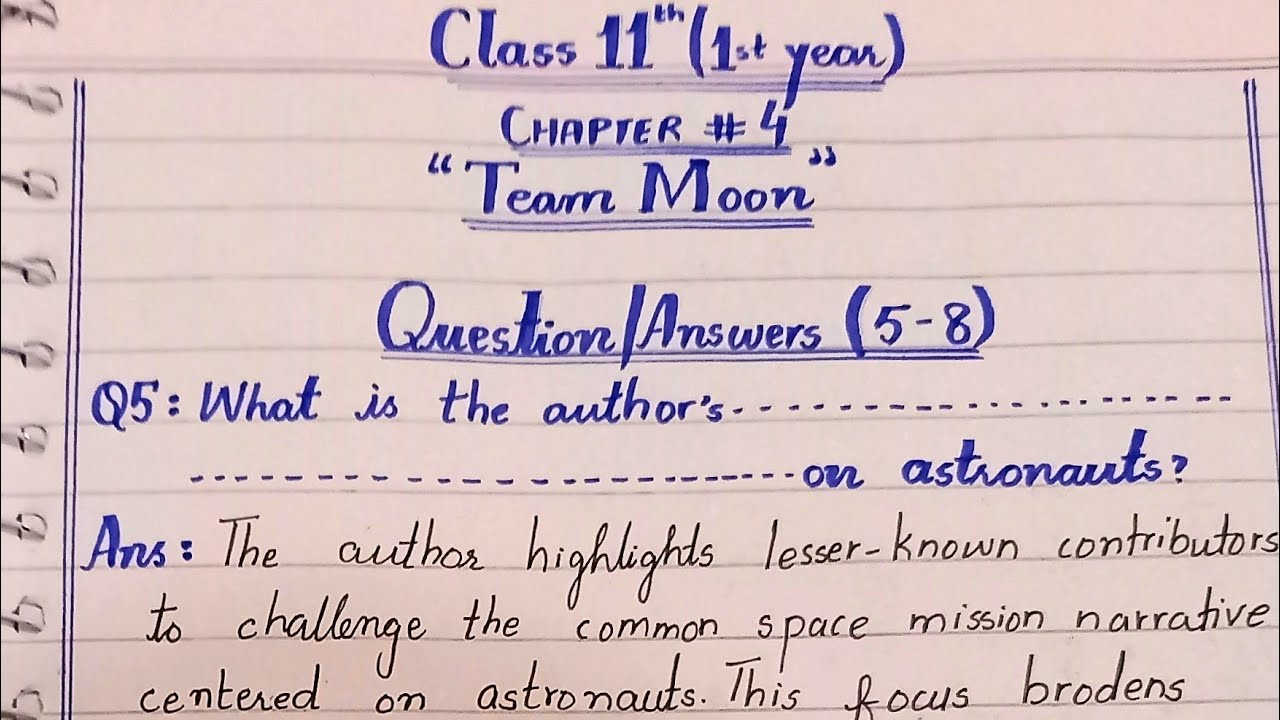 Class 11th (1st year)
CHAPTER # 4
"Team Moon"
Question/Answers (5-8)
Q5: What is the author's--------------------
----------------------------on astronauts?
Ans: The author highlights lesser-known contributors
to challenge the common space mission narrative
centered on astronauts. This focus brodens